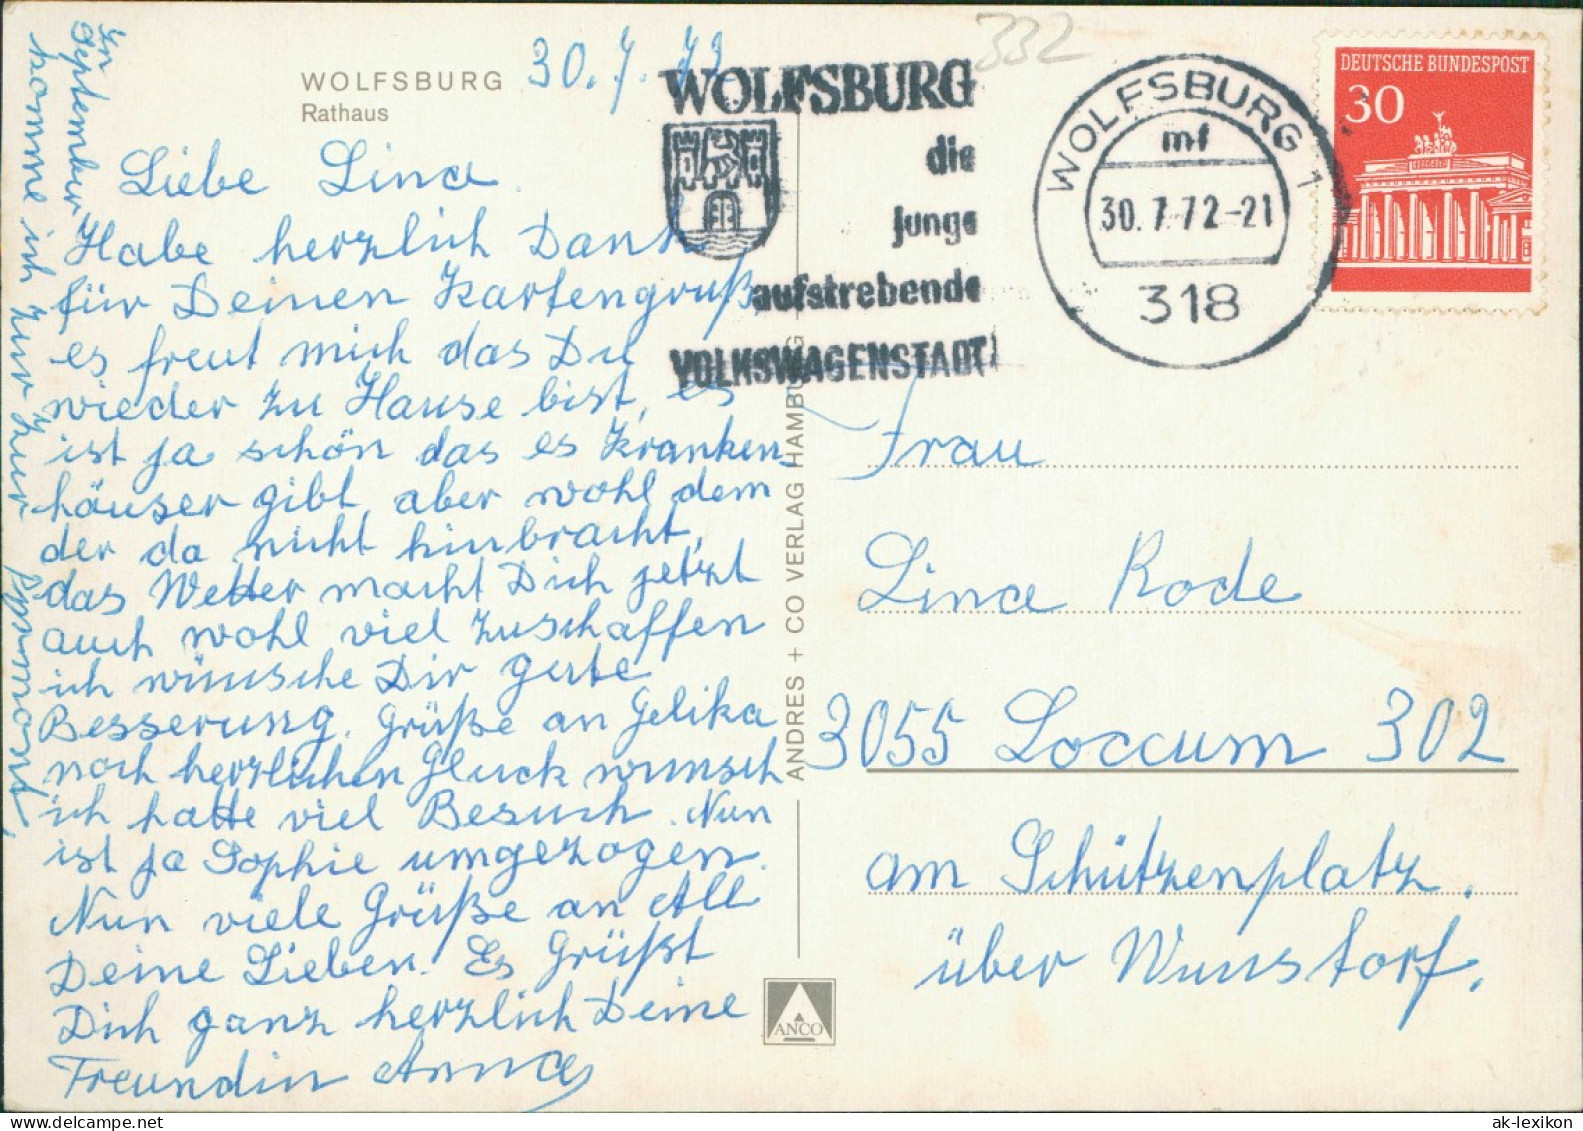 WOLFSBURG
Rathaus
30.7.72
332
Liebe Lina.
Habe herzlich Dank
für Deinen Kartengruß
es freut mich das Du
wieder zu Hause bist, es
ist ja schön das es Kranken-
häuser gibt, aber wohl dem
der da nicht hinbracht,
das Wetter macht Dich jetzt
auch wohl viel zuschaffen
ich wünsche Dir gute
Besserung. Grüße an Gelika
noch herzlichen Glückwunsch
ich hatte viel Besuch. Nun
ist ja Sophie umgezogen.
Nun viele Grüße an All
Deine Lieben. Es Grüßt
Dich ganz herzlich Deine
Freundin Anna
In
September
komme ich zur Kur Pyrmont,
WOLFSBURG
die
junge
aufstrebende
VOLKSWAGENSTADT
WOLFSBURG 1
mf
30.7.72-21
318
DEUTSCHE BUNDESPOST
30
ANDRES + CO VERLAG HAMBURG
Frau
Lina Rode
3055 Loccum 302
am Schützenplatz.
über Wunstorf.
ANCO
ak-lexikon